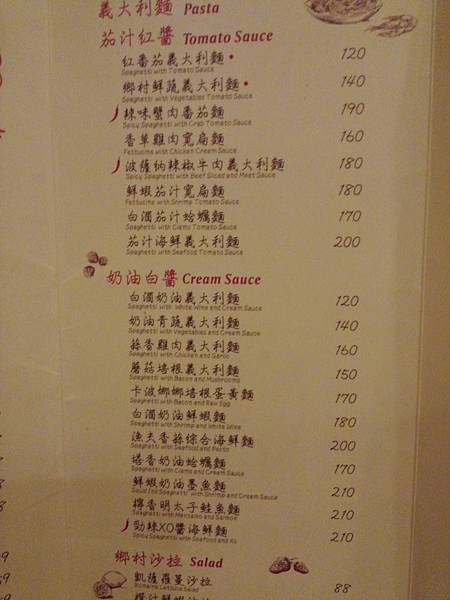 義大利麵 Pasta
茄汁紅醬 Tomato Sauce
紅番茄義大利麵 120
Spaghetti with Tomato Sauce
鄉村鮮蔬義大利麵 140
Spaghetti with Vegetables Tomato Sauce
辣味蟹肉番茄麵 190
Spicy Spaghetti with Crab Tomato Sauce
香草雞肉寬扁麵 160
Fettucine with Chicken Cream Sauce
波薩納辣椒牛肉義大利麵 180
Spicy Spaghetti with Beef Sliced and Meat Sauce
鮮蝦茄汁寬扁麵 180
Fettucine with Shrimp Tomato Sauce
白酒茄汁蛤蠣麵 170
Spaghetti with Clams Tomato Sauce
茄汁海鮮義大利麵 200
Spaghetti with Seafood Tomato Sauce
奶油白醬 Cream Sauce
白酒奶油義大利麵 120
Spaghetti with White Wine and Cream Sauce
奶油青蔬義大利麵 140
Spaghetti with Vegetables and Cream Sauce
蒜香雞肉義大利麵 160
Spaghetti with Chicken and Garlic
蘑菇培根義大利麵 150
Spaghetti with Bacon and Mushrooms
卡波娜娜培根蛋黃麵 170
Spaghetti with Bacon and Raw Egg
白酒奶油鮮蝦麵 180
Spaghetti with Shrimp and White Wine
漁夫香蒜綜合海鮮麵 200
Spaghetti with Seafood and Pesto
塔香奶油蛤蠣麵 170
Spaghetti with Clams and Cream Sauce
鮮蝦奶油墨魚麵 210
Spaghetti with Shrimp and Cream Sauce
檸香明太子鮭魚麵 210
Spaghetti with Mentaiko and Salmon
勁辣XO醬海鮮麵 210
Spicy Spaghetti with Seafood and Xo
鄉村沙拉 Salad
凱薩羅曼沙拉 88
Romaine Lettuce Salad